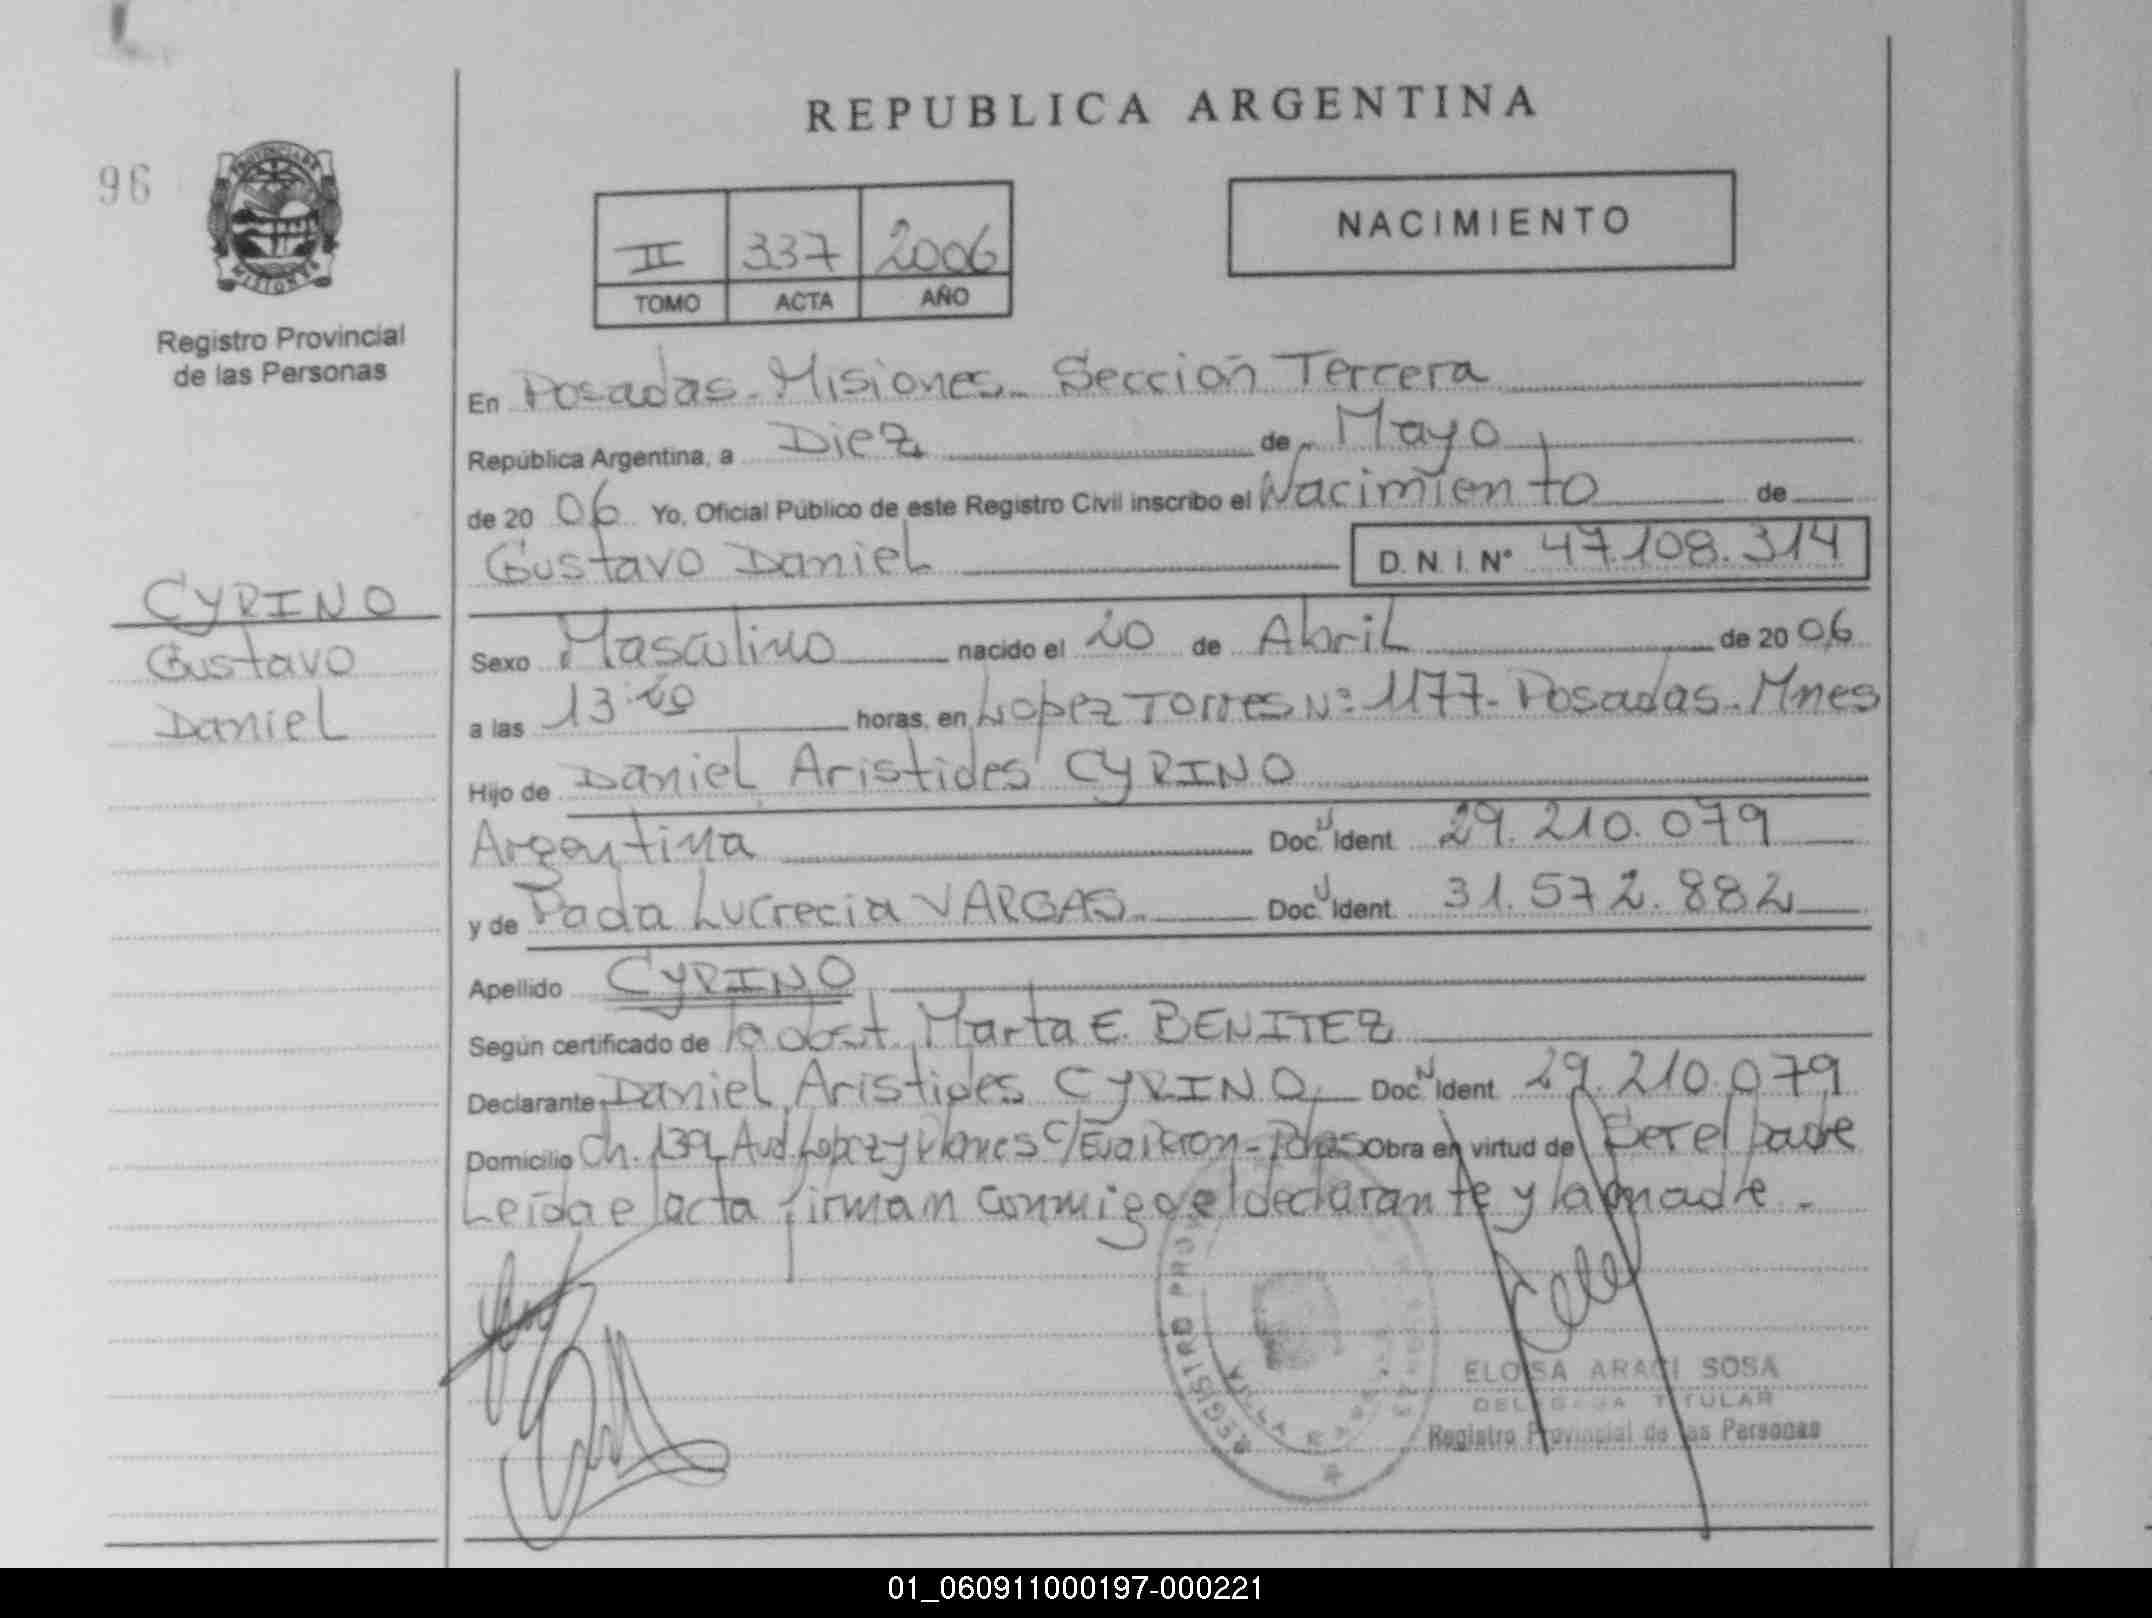 REPUBLICA ARGENTINA
96
PROVINCIA DE
MISIONES
Registro Provincial
de las Personas
II 337 2006
TOMO ACTA AÑO
NACIMIENTO
En Posadas - Misiones - Sección Tercera
República Argentina, a Diez de Mayo
de 20 06 Yo, Oficial Público de este Registro Civil inscribo el Nacimiento de
Gustavo Daniel D. N. I. N° 47.108.314
CYRINO
Gustavo
Daniel
Sexo Masculino nacido el 20 de Abril de 20 06
a las 13:20 horas, en Lopez Torres Nº 1177 - Posadas - Mnes
Hijo de Daniel Aristides CYRINO
Argentina Doc. Ident. 29.210.079
y de Lucrecia VARGAS Doc. Ident. 31.572.882
Apellido CYRINO
Según certificado de la obst. Marta E. BENITEZ
Declarante Daniel Aristides CYRINO Doc. Ident. 29.210.079
Domicilio Ch. 139 Avd. Lopez y Planes c/ Eva Peron - Pdas Obra en virtud de Ser el padre
Leída el acta firman conmigo el declarante y la madre -
REGISTRO
ELOISA ARACI SOSA
DELEGADA TITULAR
Registro Provincial de las Personas
01_060911000197-000221